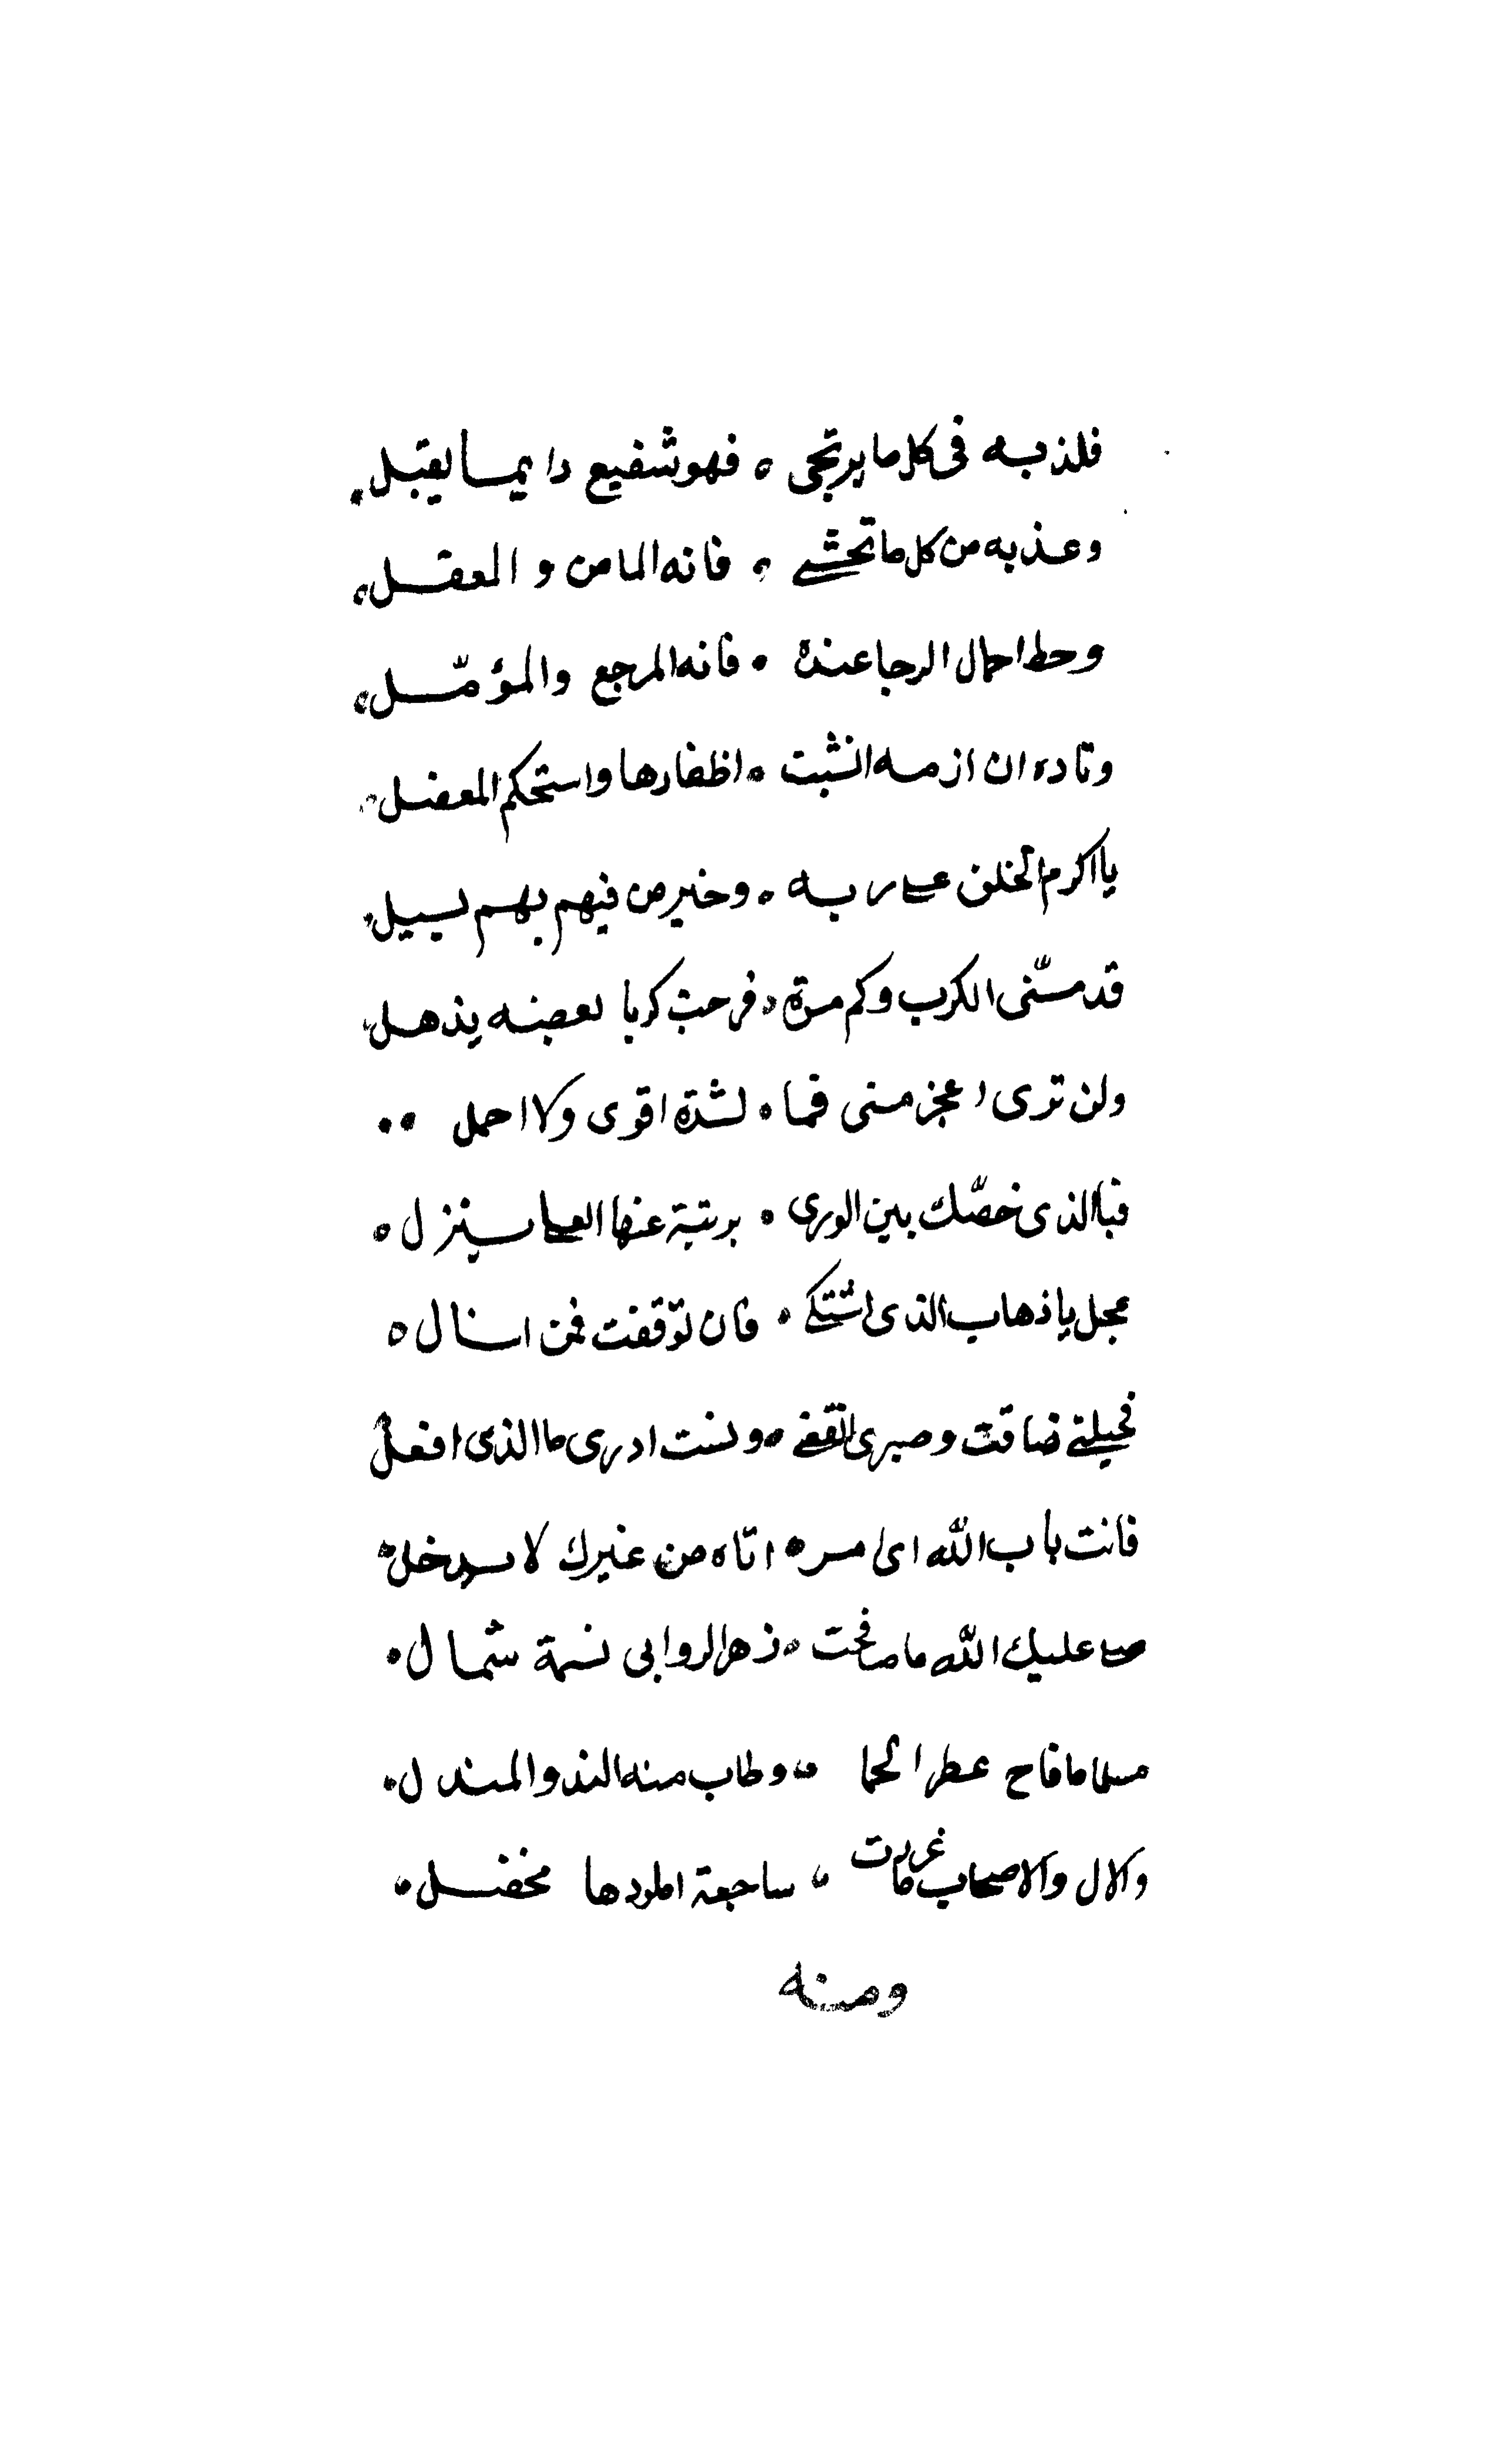 فلذ به فى كل ما يرتجى ه فهو شفيع دايما يقبل
وعذ به من كل ما تخشى ه فانه المامن والمعقل
وحط احمال الرجا عنده ه فانه المرجع والمؤمّل
وناده ان ازمه انشبت ه اظفارها واستحكم المعضل
يا اكرم الخلق على ربه ه وخير من فيهم بهم يسيل
قد مسّنى الكرب وكم مرة ه فرجت كربا بعضه يذهل
ولن ترى اعجز منى فما ه لشدة اقوى ولا احمل
فبالذى خصّك بين الورى ه برتبة عنها العلى ينزل ه
عجل باذهاب الذى اشتكى ه فان توقفت فمن اسال ه
فحيلتى ضاقت وصبرى انقضى ه ولست ادرى ما الذى افعل
فانت باب الله اى امر ه اتاه من غيرك لا يدخل
صلى عليك الله ما صافحت ه زهر الروابى نسمة شمال
مسلما ما فاح عطر الحما ه وطاب منه الند والمندل
والال والاصحاب ما غردت ه ساجعة املودها مخضل
ومنه